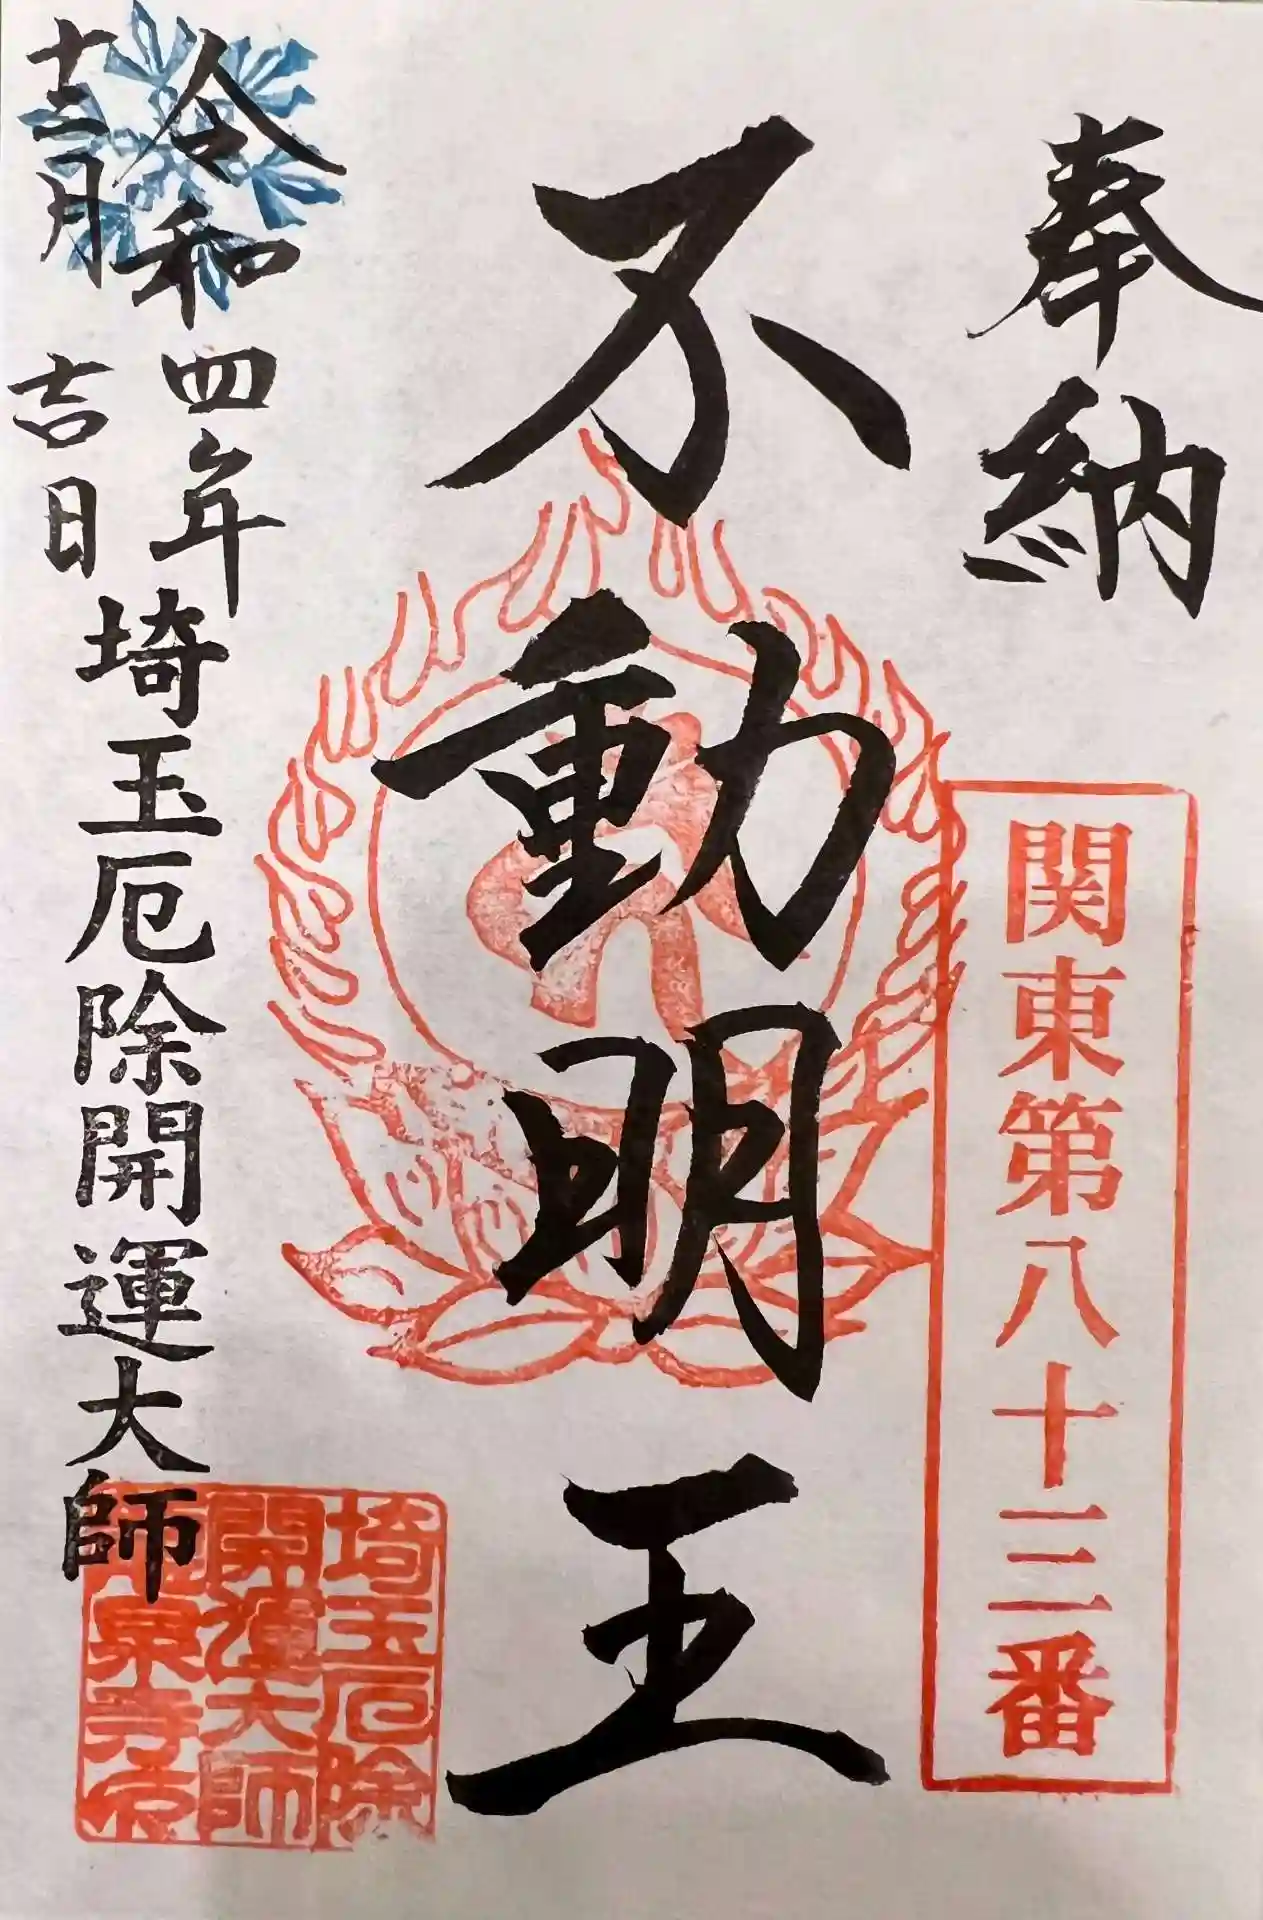 奉納
関東第八十三番
不動明王
令和四年
十二月
吉日
埼玉厄除開運大師
埼玉厄除
開運大師
泉寺印